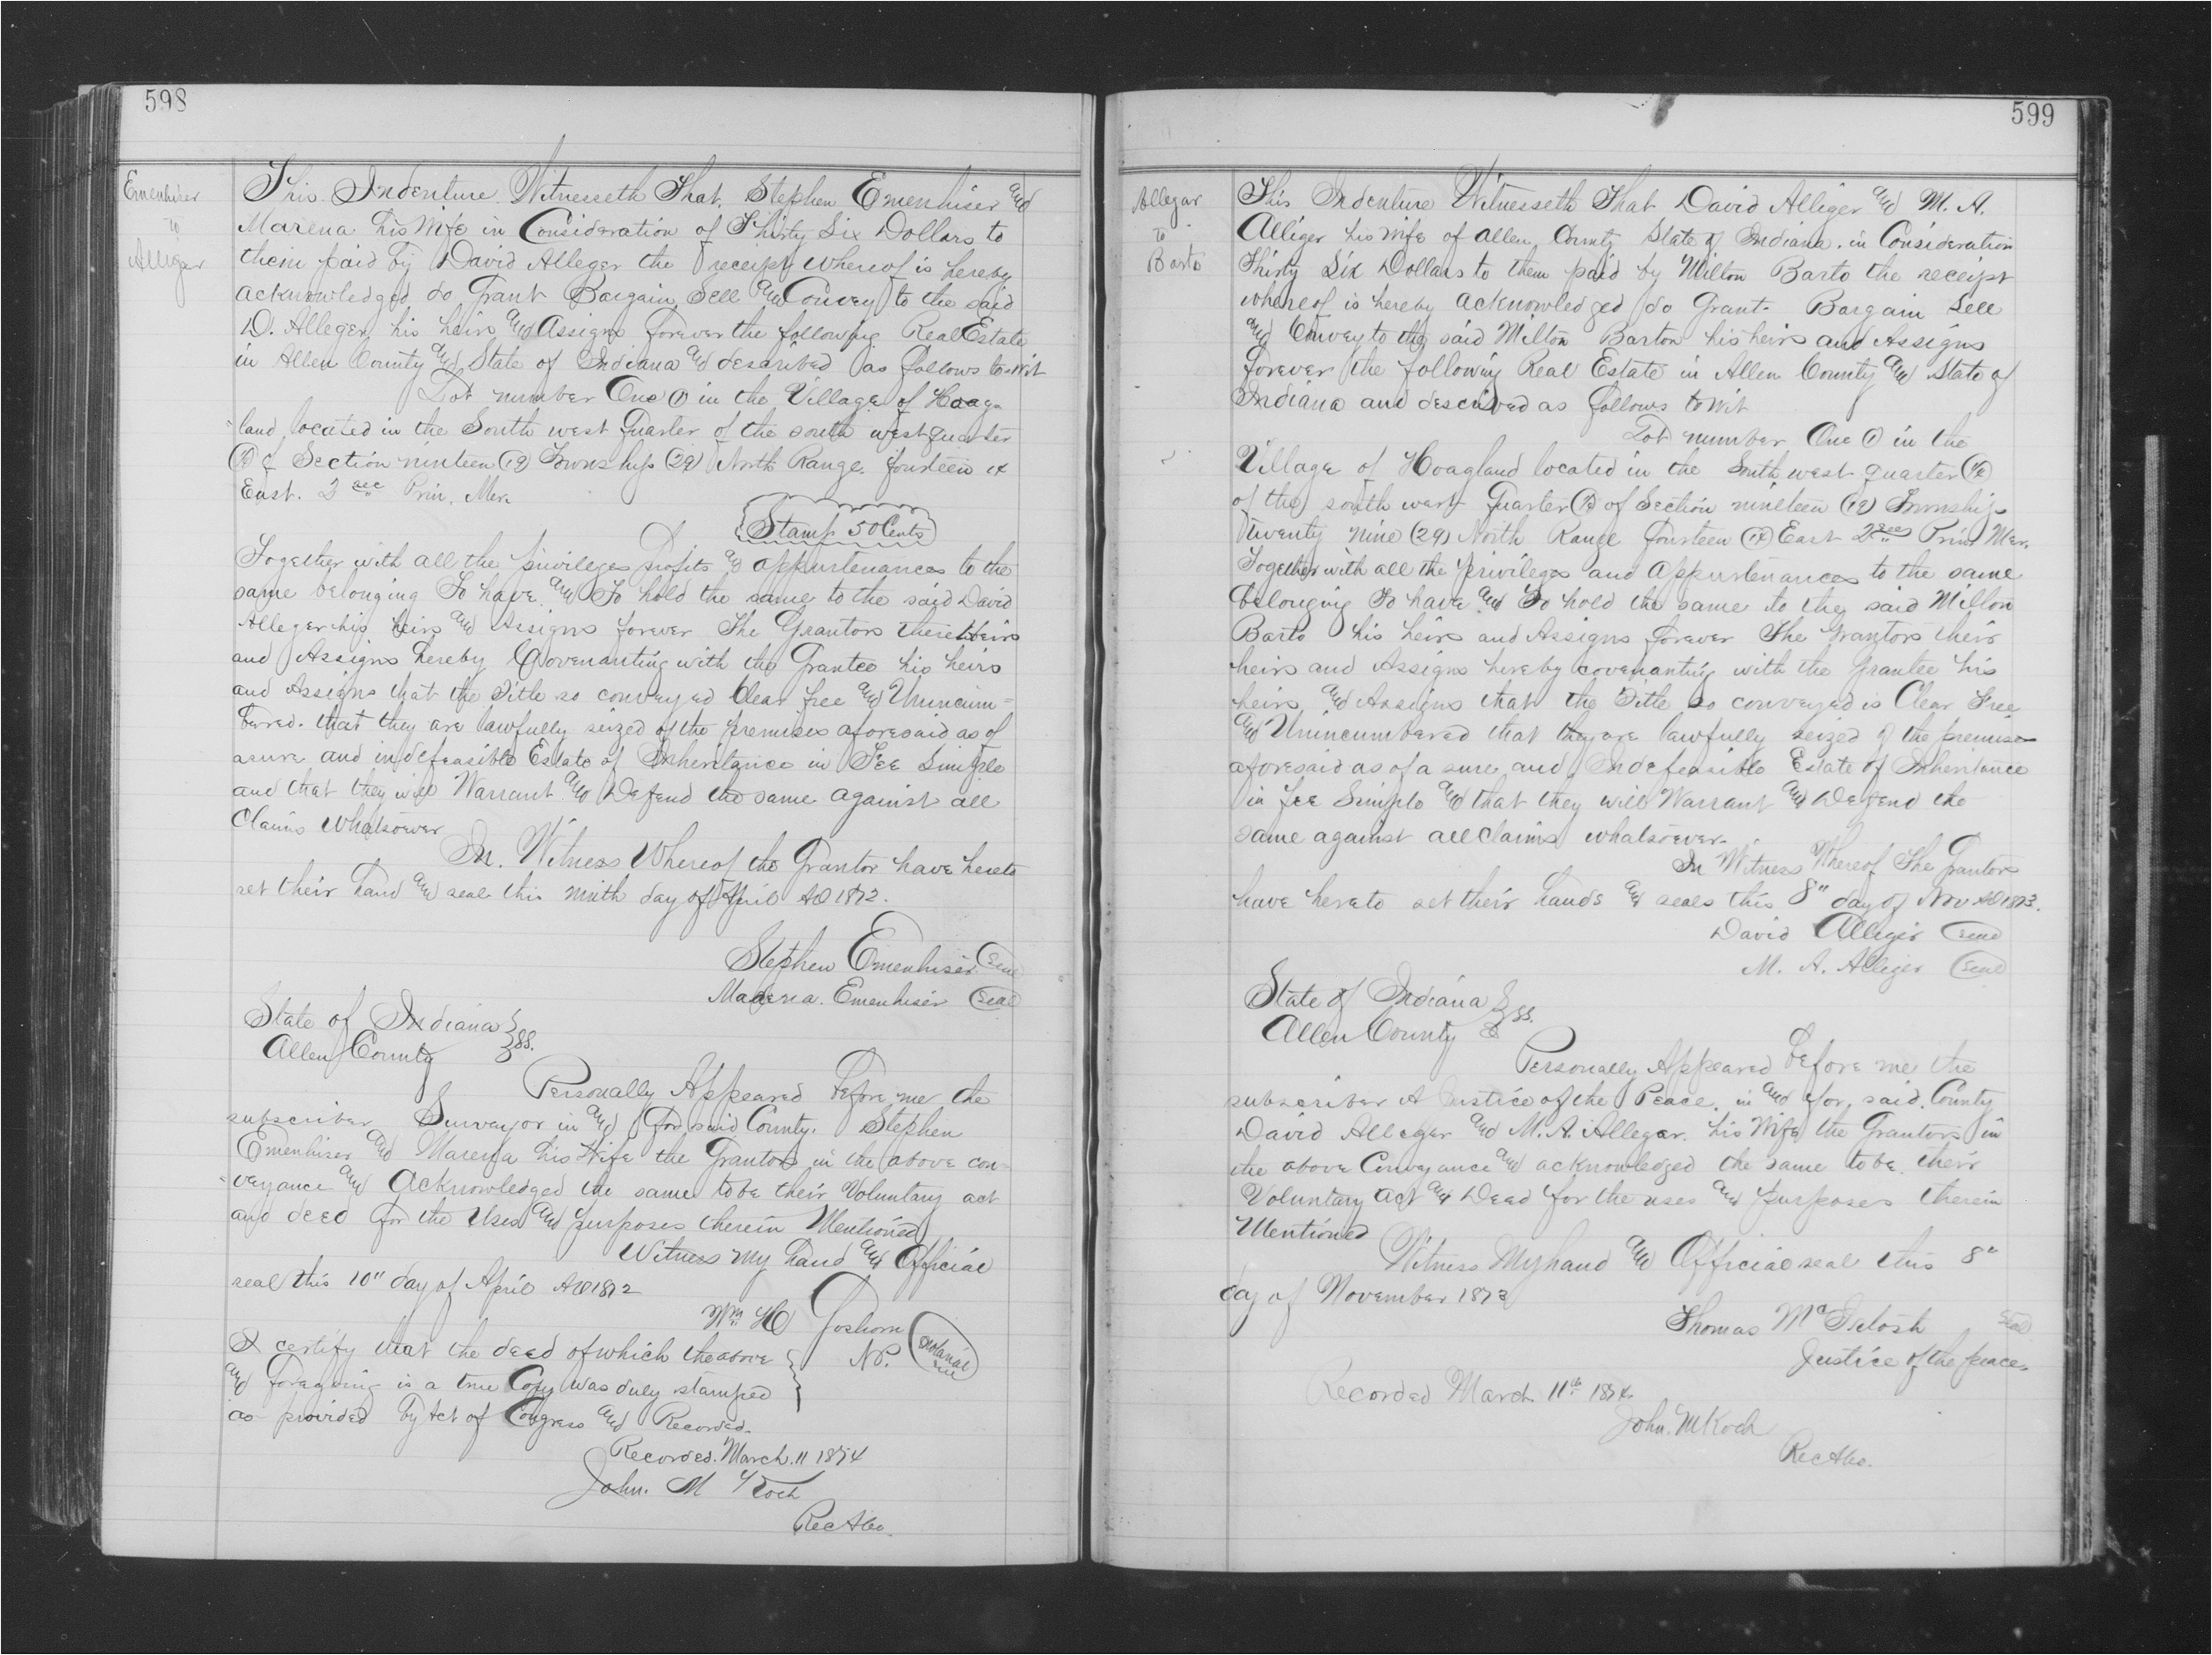 598
Emenhiser
to
Alliger
This Indenture Witnesseth That Stephen Emenhiser and
Marena his Wife in Consideration of Thirty Six Dollars to
them paid by David Alleger the receipt whereof is hereby
acknowledged do Grant Bargain Sell and Convey to the said
D. Alleger his heirs and Assigns forever the following Real Estate
in Allen County and State of Indiana and described as follows to-wit
Lot number One (1) in the Village of Hoag-
land located in the South west Quarter of the south west quarter
(¼) of Section nineteen (19) Township (29) North Range fourteen 14
East. 2nd Prin. Mer.
Stamp 50 Cents
Together with all the privileges profits and appurtenances to the
same belonging To have and To hold the same to the said David
Alleger his heirs and Assigns forever The Grantors their heirs
and Assigns hereby Covenanting with the Grantee his heirs
and Assigns that the Title so conveyed Clear free and Unincum=
berred. that they are lawfully seized of the premises aforesaid as of
a sure and indefeasible Estate of Inheritance in Fee Simple
and that they will Warrant and Defend the same against all
Claims whatsoever
In Witness Whereof the Grantor have hereto
set their hand and seal this ninth day of April AD 1872.
Stephen Emenhiser Seal
Marena Emenhiser Seal
State of Indiana
Allen County } SS.
Personally Appeared before me the
subscriber Surveyor in and for said County. Stephen
Emenhiser and Marena his Wife the Grantors in the above con=
veyance and Acknowledged the same to be their Voluntary act
and deed for the Uses and purposes therein Mentioned
Witness my hand and Official
seal this 10" day of April AD 1872
Wm H Goshorn
N.P. Notarial Seal
I certify that the deed of which the above
and foregoing is a true Copy was duly stamped
as provided by Act of Congress and Recorded.
Recorded. March. 11 1874
John. M Koch
Rec A Co.
599
Allegar
to
Barto
This Indenture Witnesseth That David Alliger and M. A.
Alliger his wife of Allen County State of Indiana. in Consideration
Thirty Six Dollars to them paid by Milton Barto the receipt
whereof is hereby acknowledged do Grant Bargain Sell
and Convey to the said Milton Barton his heirs and Assigns
forever the following Real Estate in Allen County and State of
Indiana and described as follows to wit
Lot number One (1) in the
Village of Hoagland located in the South west quarter (¼)
of the south west Quarter (¼) of Section nineteen (19) Township
Twenty nine (29) North Range Fourteen (14) East 2nd Prin Mer.
Together with all the privileges and Appurtenances to the same
belonging To have and To hold the same to the said Milton
Barto his heirs and Assigns forever The Grantors their
heirs and Assigns hereby covenanting with the Grantee his
heirs and Assigns that the Title so conveyed is Clear Free
and Unincumbered that they are lawfully seized of the premises
aforesaid as of a sure and Indefeasible Estate of Inheritance
in fee Simple and that they will Warrant and Defend the
same against all claims whatsoever.
In Witness Whereof The Grantors
have hereto set their hands and seals this 8" day of Nov AD 1873.
David Alliger Seal
M. A. Alliger Seal
State of Indiana
Allen County } SS.
Personally Appeared before me the
subscriber A Justice of the Peace in and for said County
David Alleger and M. A. Alleger. his Wife the Grantors in
the above Conveyance and acknowledged the same to be their
Voluntary act and Deed for the uses and purposes therein
Mentioned
Witness My hand and Official seal this 8"
day of November 1873
Thomas McIntosh Seal
Justice of the peace
Recorded March 11th 1874
John. M Koch
Rec A Co.